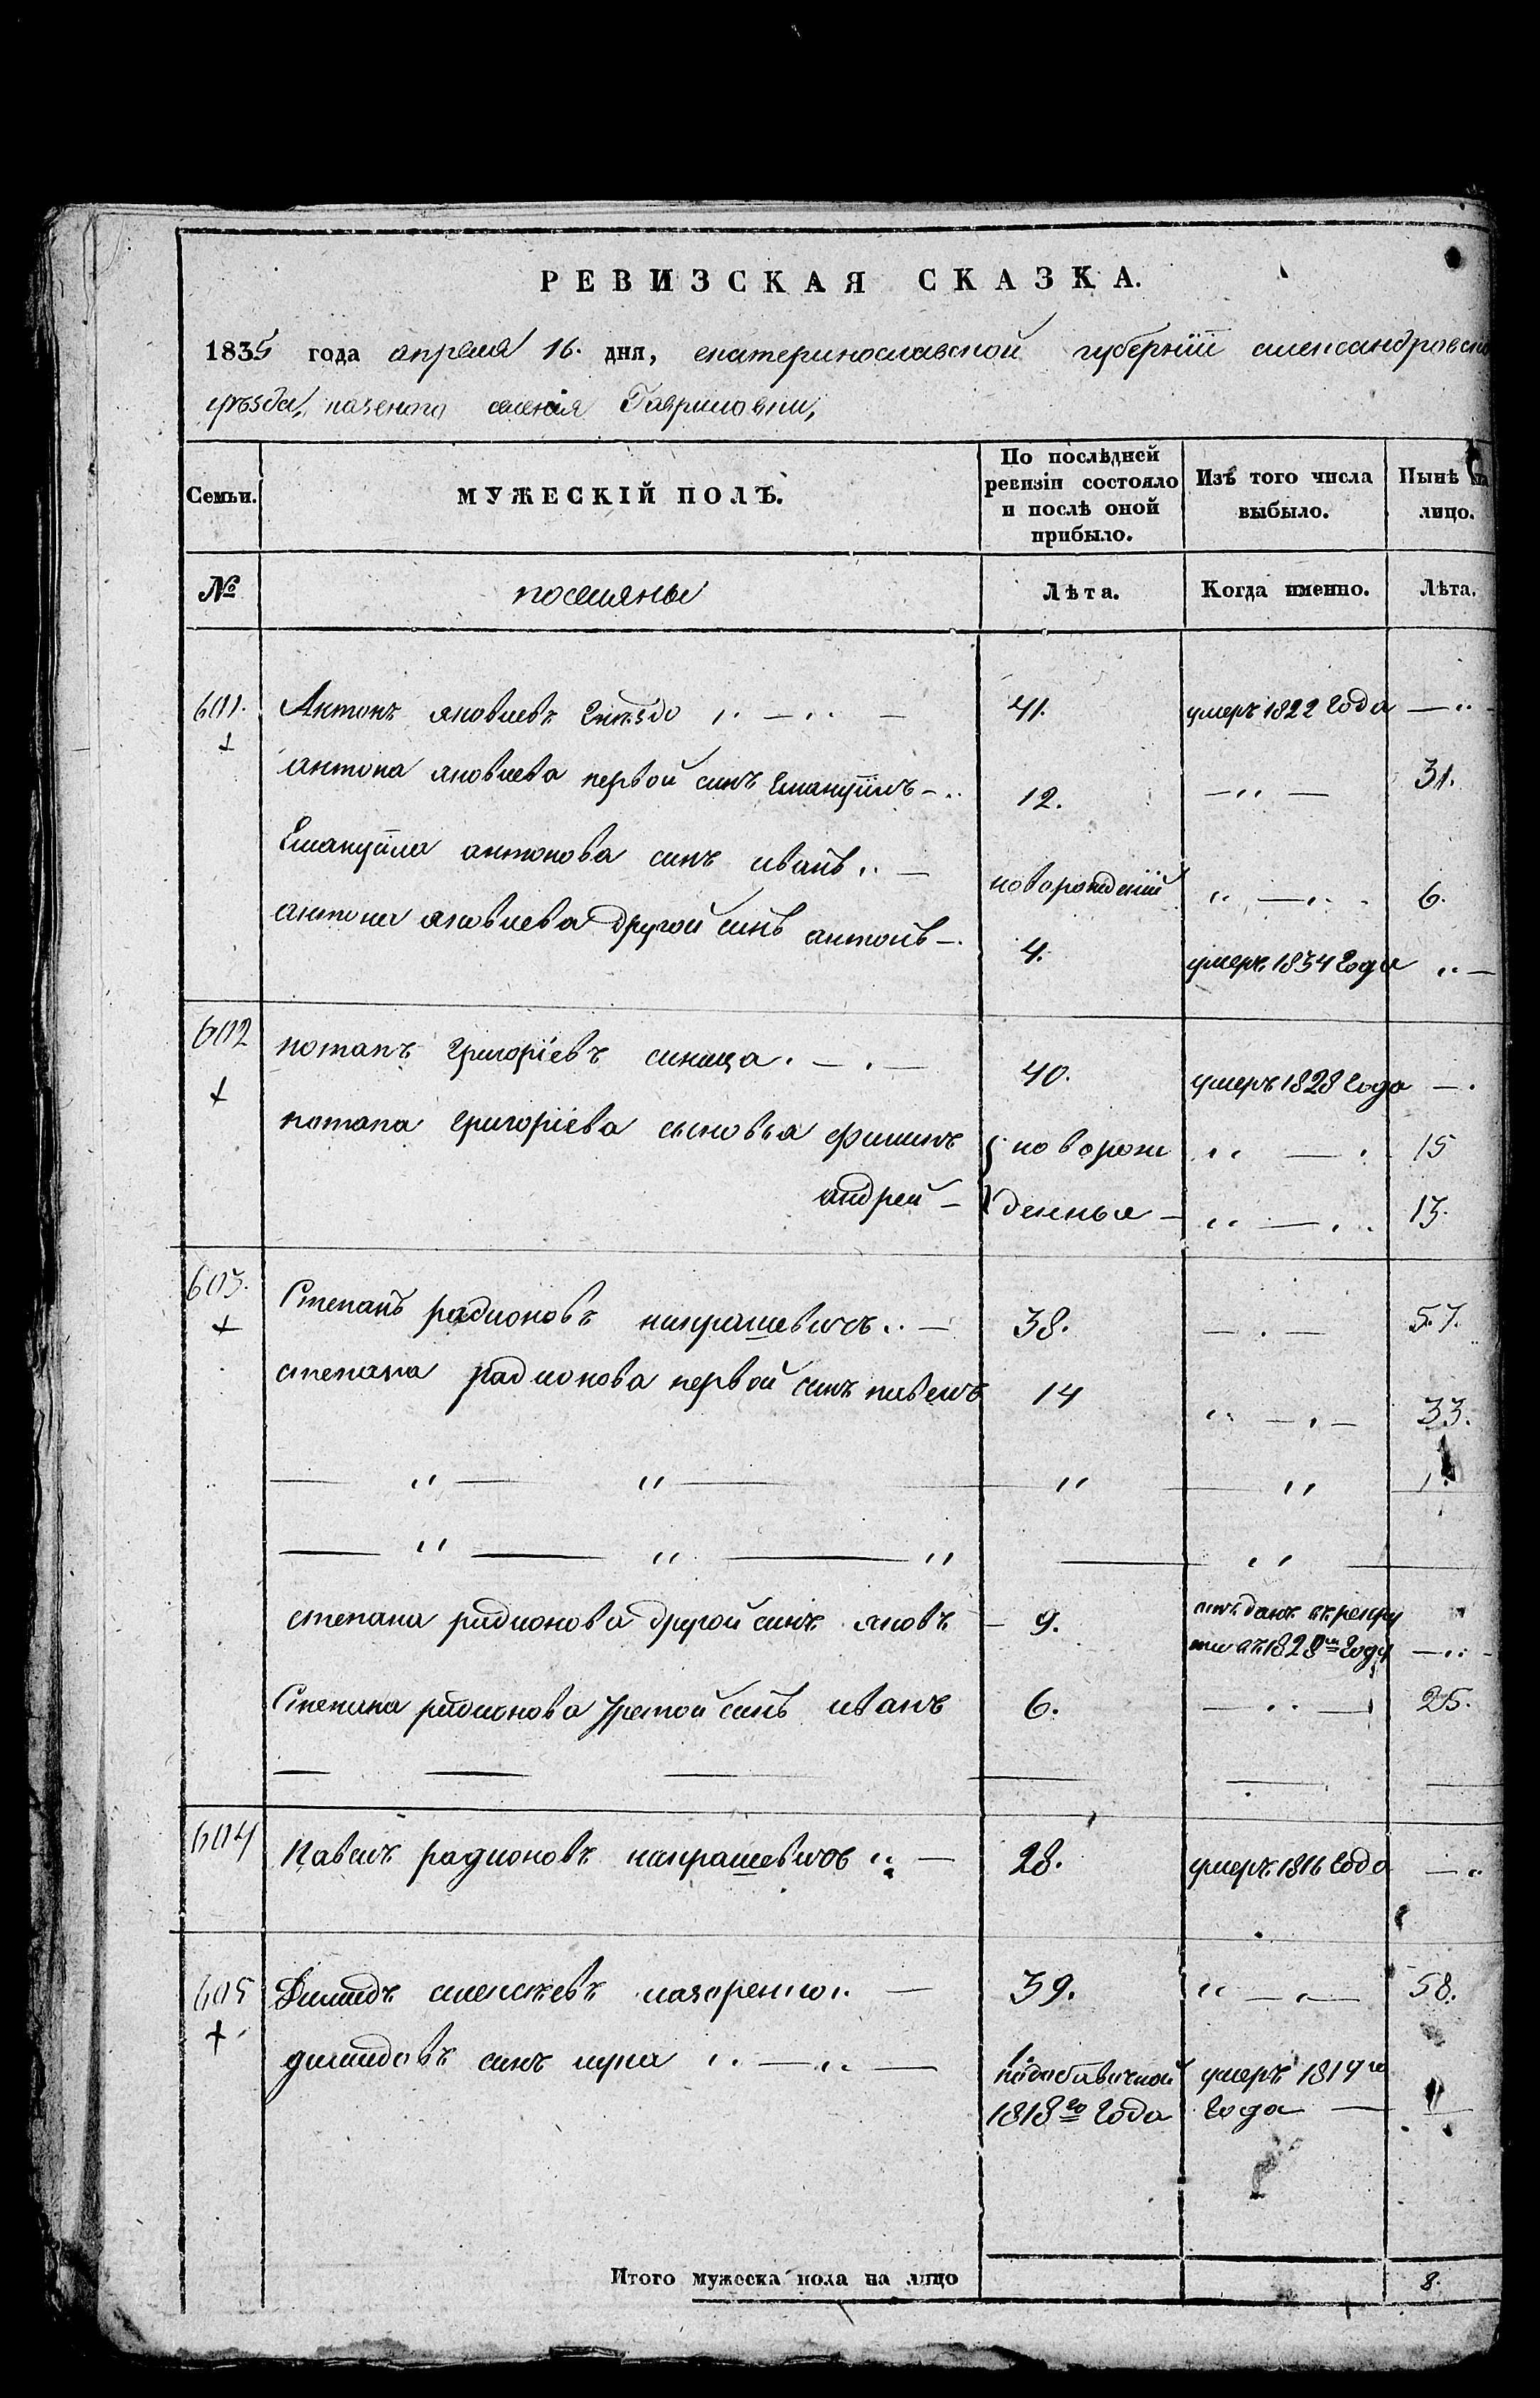 РЕВИЗСКАЯ СКАЗКА.
1835 года апреля 16. дня, екатеринославской губерніи александровска
уѣзда, казеного селенія Гавриловки,
Семьи. МУЖЕСКІЙ ПОЛЪ. По послѣдней ревизіи состояло и послѣ оной прибыло. Изъ того числа выбыло. Нынѣ на лицо.
№ поселяны Лѣта. Когда именно. Лѣта.
601. Антонъ яковлевъ Гнѣздо 41. умеръ 1822 года
антона яковлева первой синъ Емануилъ 12. 31.
Емануила антонова синъ иванъ новорожденій 6.
антона яковлева другой синъ антонъ 4. умеръ 1834 года
602 потапъ григоріевъ синица 40. умеръ 1828 года
потапа григоріева сыновья филипъ новорож 15
андрей денные 13.
603. Степанъ радионовъ накрашевичъ 38. 57.
степана радионова первой синъ павелъ 14 33.
степана радионова другой синъ яковъ 9. отъданъ въ рекру
ты въ 1828м году
Степана радионова третой синъ иванъ 6. 25.
604 Павелъ радионовъ накрашевичъ 28. умеръ 1816 года
605 Димидъ алексѣевъ назаренко 39. 58.
димидовъ синъ лука 1. умеръ 1819го
1818го года года
Итого мужеска пола на лицо 8.